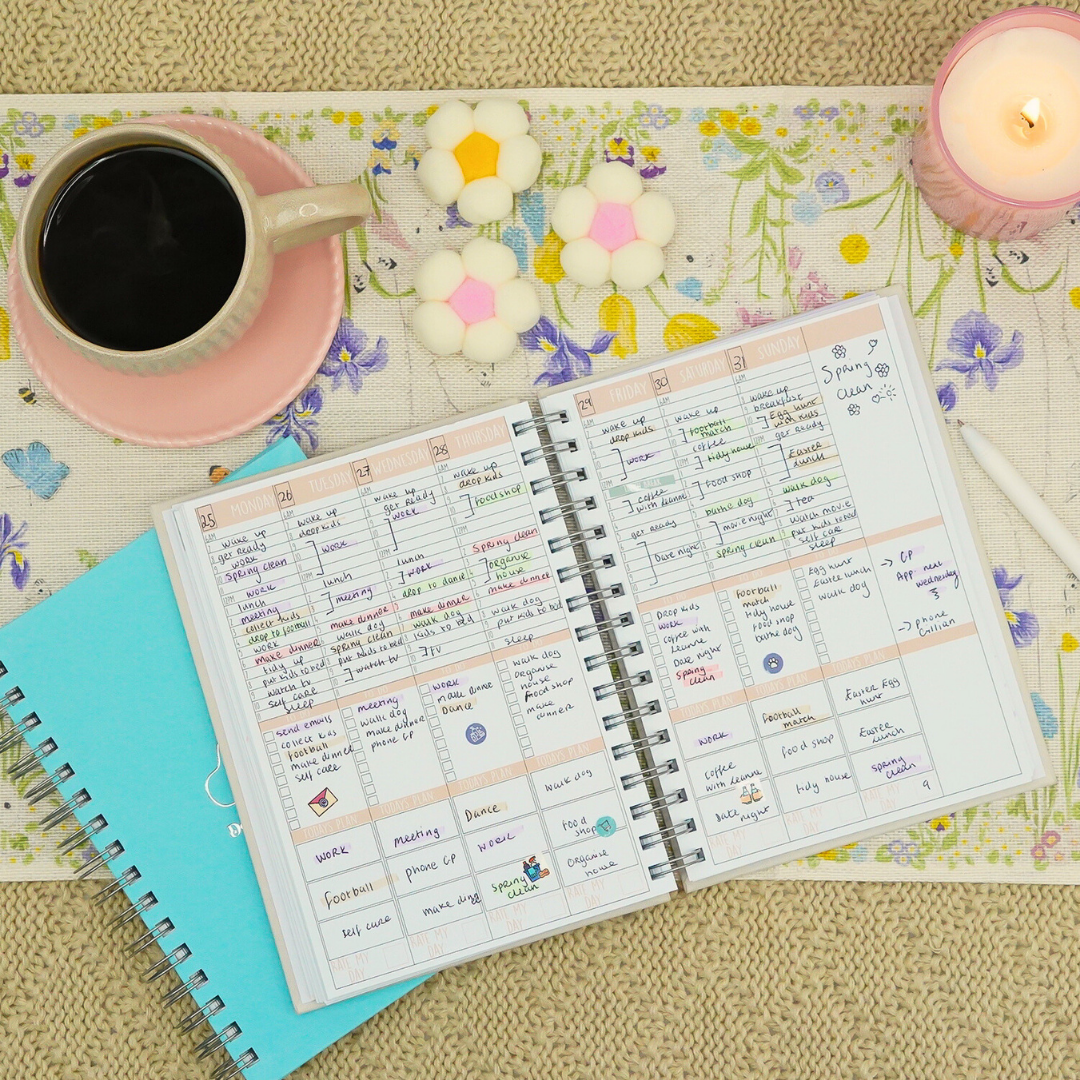 25 MONDAY
wake up
get ready
work
Spring clean
work
lunch
meeting
collect kids
drop to football
work
make dinner
tidy up
put kids to bed
watch tv
self care
sleep
send emails
collect kids
football
make dinner
self care
TODAYS PLAN
work
Football
self care
RATE MY DAY
26 TUESDAY
wake up
drop kids
work
lunch
meeting
make dinner
walk dog
spring clean
put kids to bed
watch tv
meeting
walk dog
make dinner
phone GP
TODAYS PLAN
meeting
phone GP
RATE MY DAY
27 WEDNESDAY
wake up
get ready
work
lunch
work
drop to dance
make dinner
walk dog
kids to bed
TV
work
make dinner
Dance
TODAYS PLAN
Dance
work
Spring clean
RATE MY DAY
28 THURSDAY
wake up
drop kids
food shop
Spring clean
organise
house
make dinner
walk dog
put kids to bed
sleep
walk dog
organise
house
food shop
make
dinner
TODAYS PLAN
walk dog
Food
shop
Organise
house
RATE MY DAY
29 FRIDAY
wake up
drop kids
work
coffee
with Leanne
get ready
Date night
Drop kids
work
coffee with
Leanne
Date night
Spring
clean
TODAYS PLAN
work
coffee
with Leanne
Date night
RATE MY DAY
30 SATURDAY
wake up
football
match
coffee
tidy house
food shop
bathe dog
movie night
spring clean
football
match
tidy house
food shop
bathe dog
TODAYS PLAN
Football
match
food shop
tidy house
RATE MY DAY
31 SUNDAY
wake up
breakfast
Egg hunt
with kids
get ready
Easter
lunch
walk dog
tea
watch movie
put kids to bed
self care
sleep
Egg hunt
Easter lunch
walk dog
TODAYS PLAN
Easter Egg
hunt
Easter
lunch
Spring
clean
RATE MY DAY
9
Spring
clean
→ GP
App next
wednesday
3
→ phone
Gillian